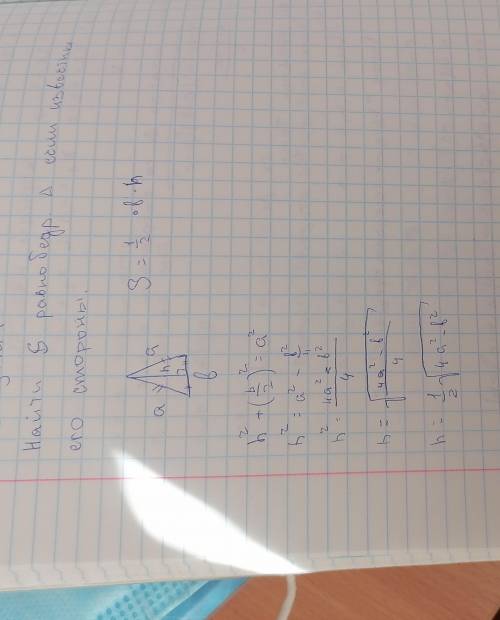 Найти S равнобедр. Δ если известны
его стороны.
a a
h
b
S = 1/2 · b · h
h² + (b/2)² = a²
h² = a² - b²/4
h² = (4a² - b²)/4
h = √((4a² - b²)/4)
h = 1/2 √(4a² - b²)